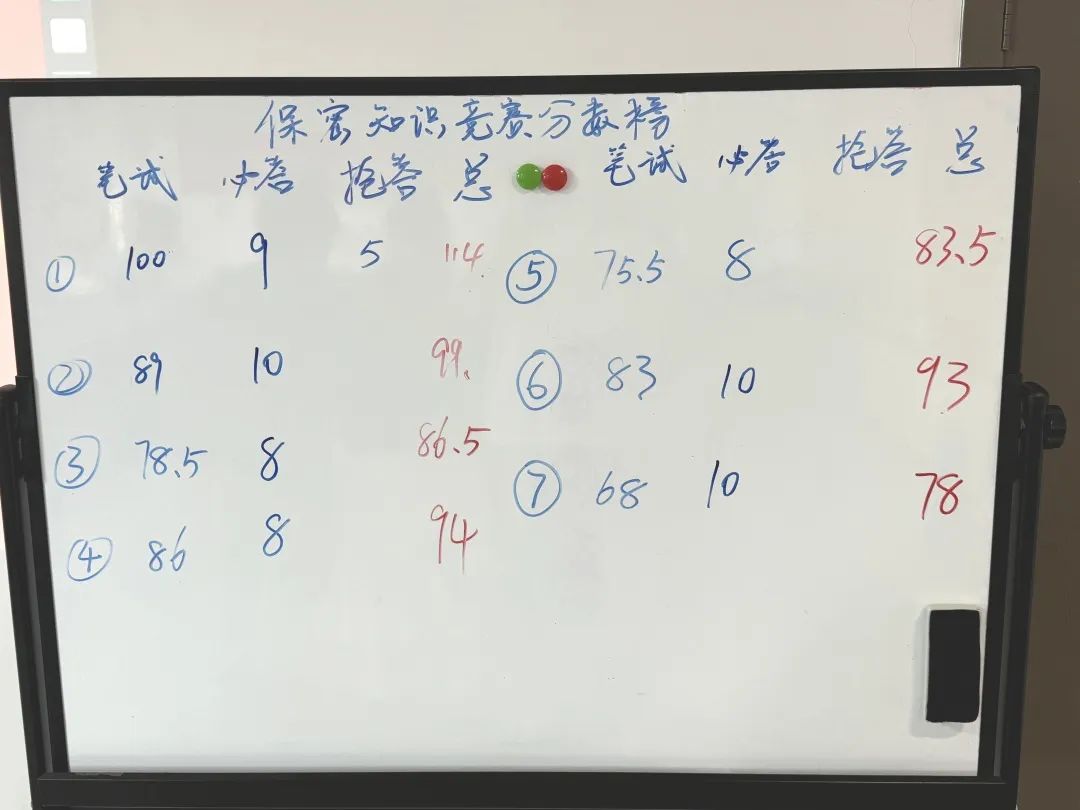 保密知识竞赛分数榜
笔试 必答 抢答 总 笔试 必答 抢答 总
① 100 9 5 114 ⑤ 75.5 8 83.5
② 89 10 99 ⑥ 83 10 93
③ 78.5 8 86.5 ⑦ 68 10 78
④ 86 8 94